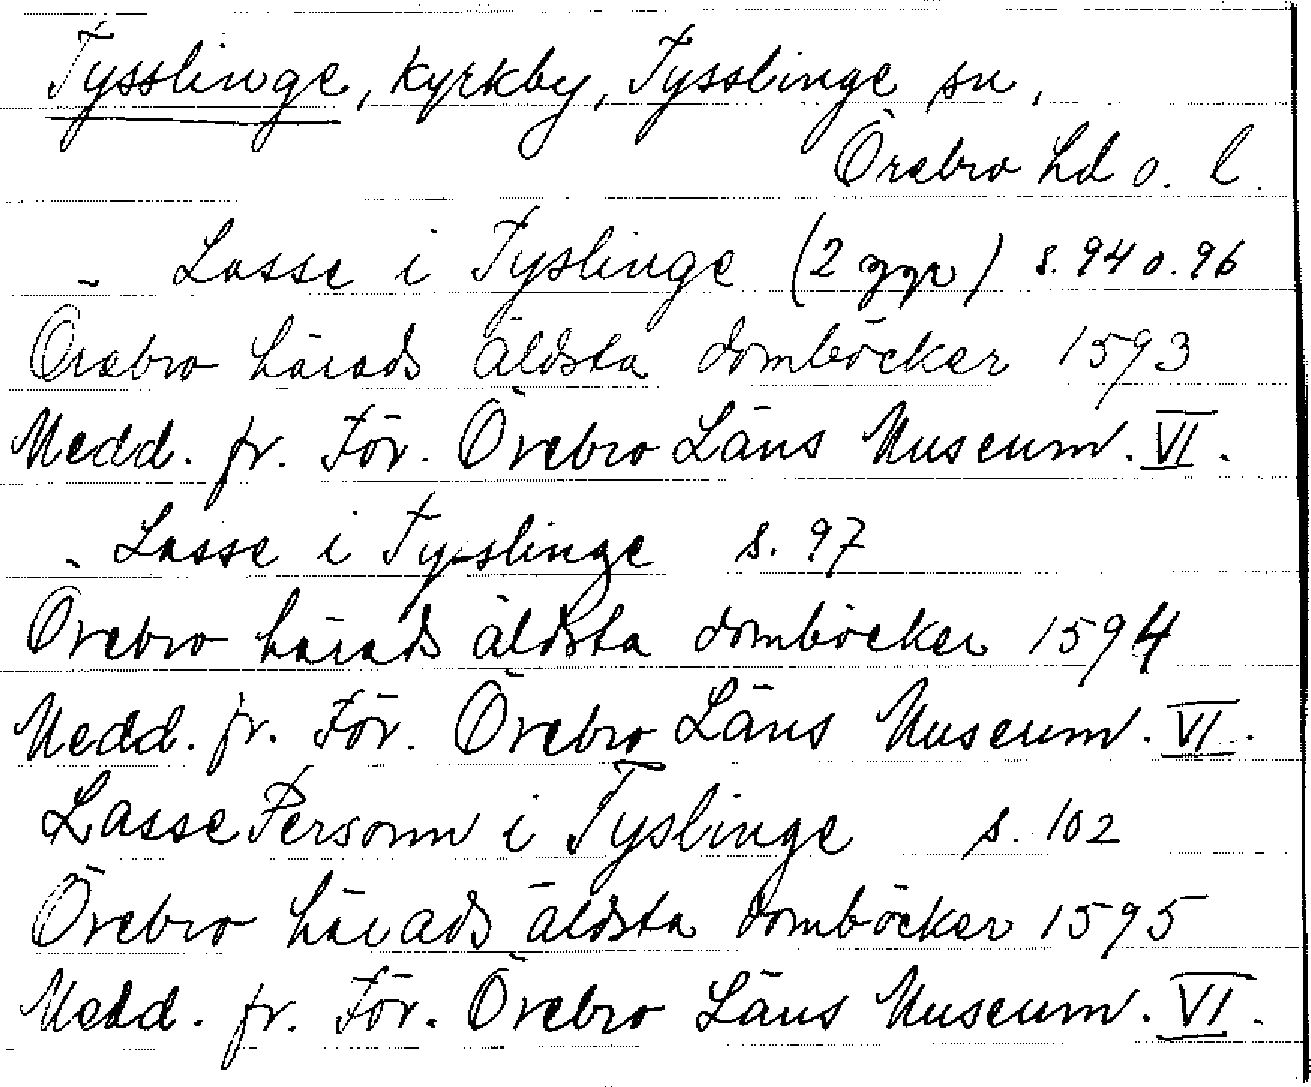 Tysslinge, kyrkby, Tysslinge sn,
Örebro hd o. l.
- Lasse i Tyslinge (2 ggr) s. 94 o. 96
Örebro härads äldsta domböcker 1593
Medd. fr. För. Örebro Läns Museum. VI.
- Lasse i Tyslinge s. 97
Örebro härads äldsta domböcker 1594
Medd. fr. För. Örebro Läns Museum. VI.
Lasse Personn i Tyslinge s. 102
Örebro härads äldsta domböcker 1595
Medd. fr. För. Örebro Läns Museum. VI.